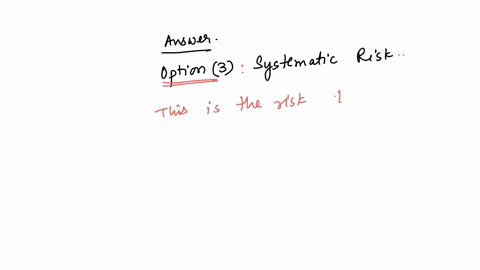 Answer.
Option (3) : Systematic Risk..
This is the risk